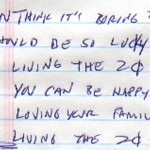 N THINK IT'S BORING
OULD BE SO LUCKY
LIVING THE 2¢
YOU CAN BE HAPPY
LOVING YOUR FAMIL
LIVING THE 2¢